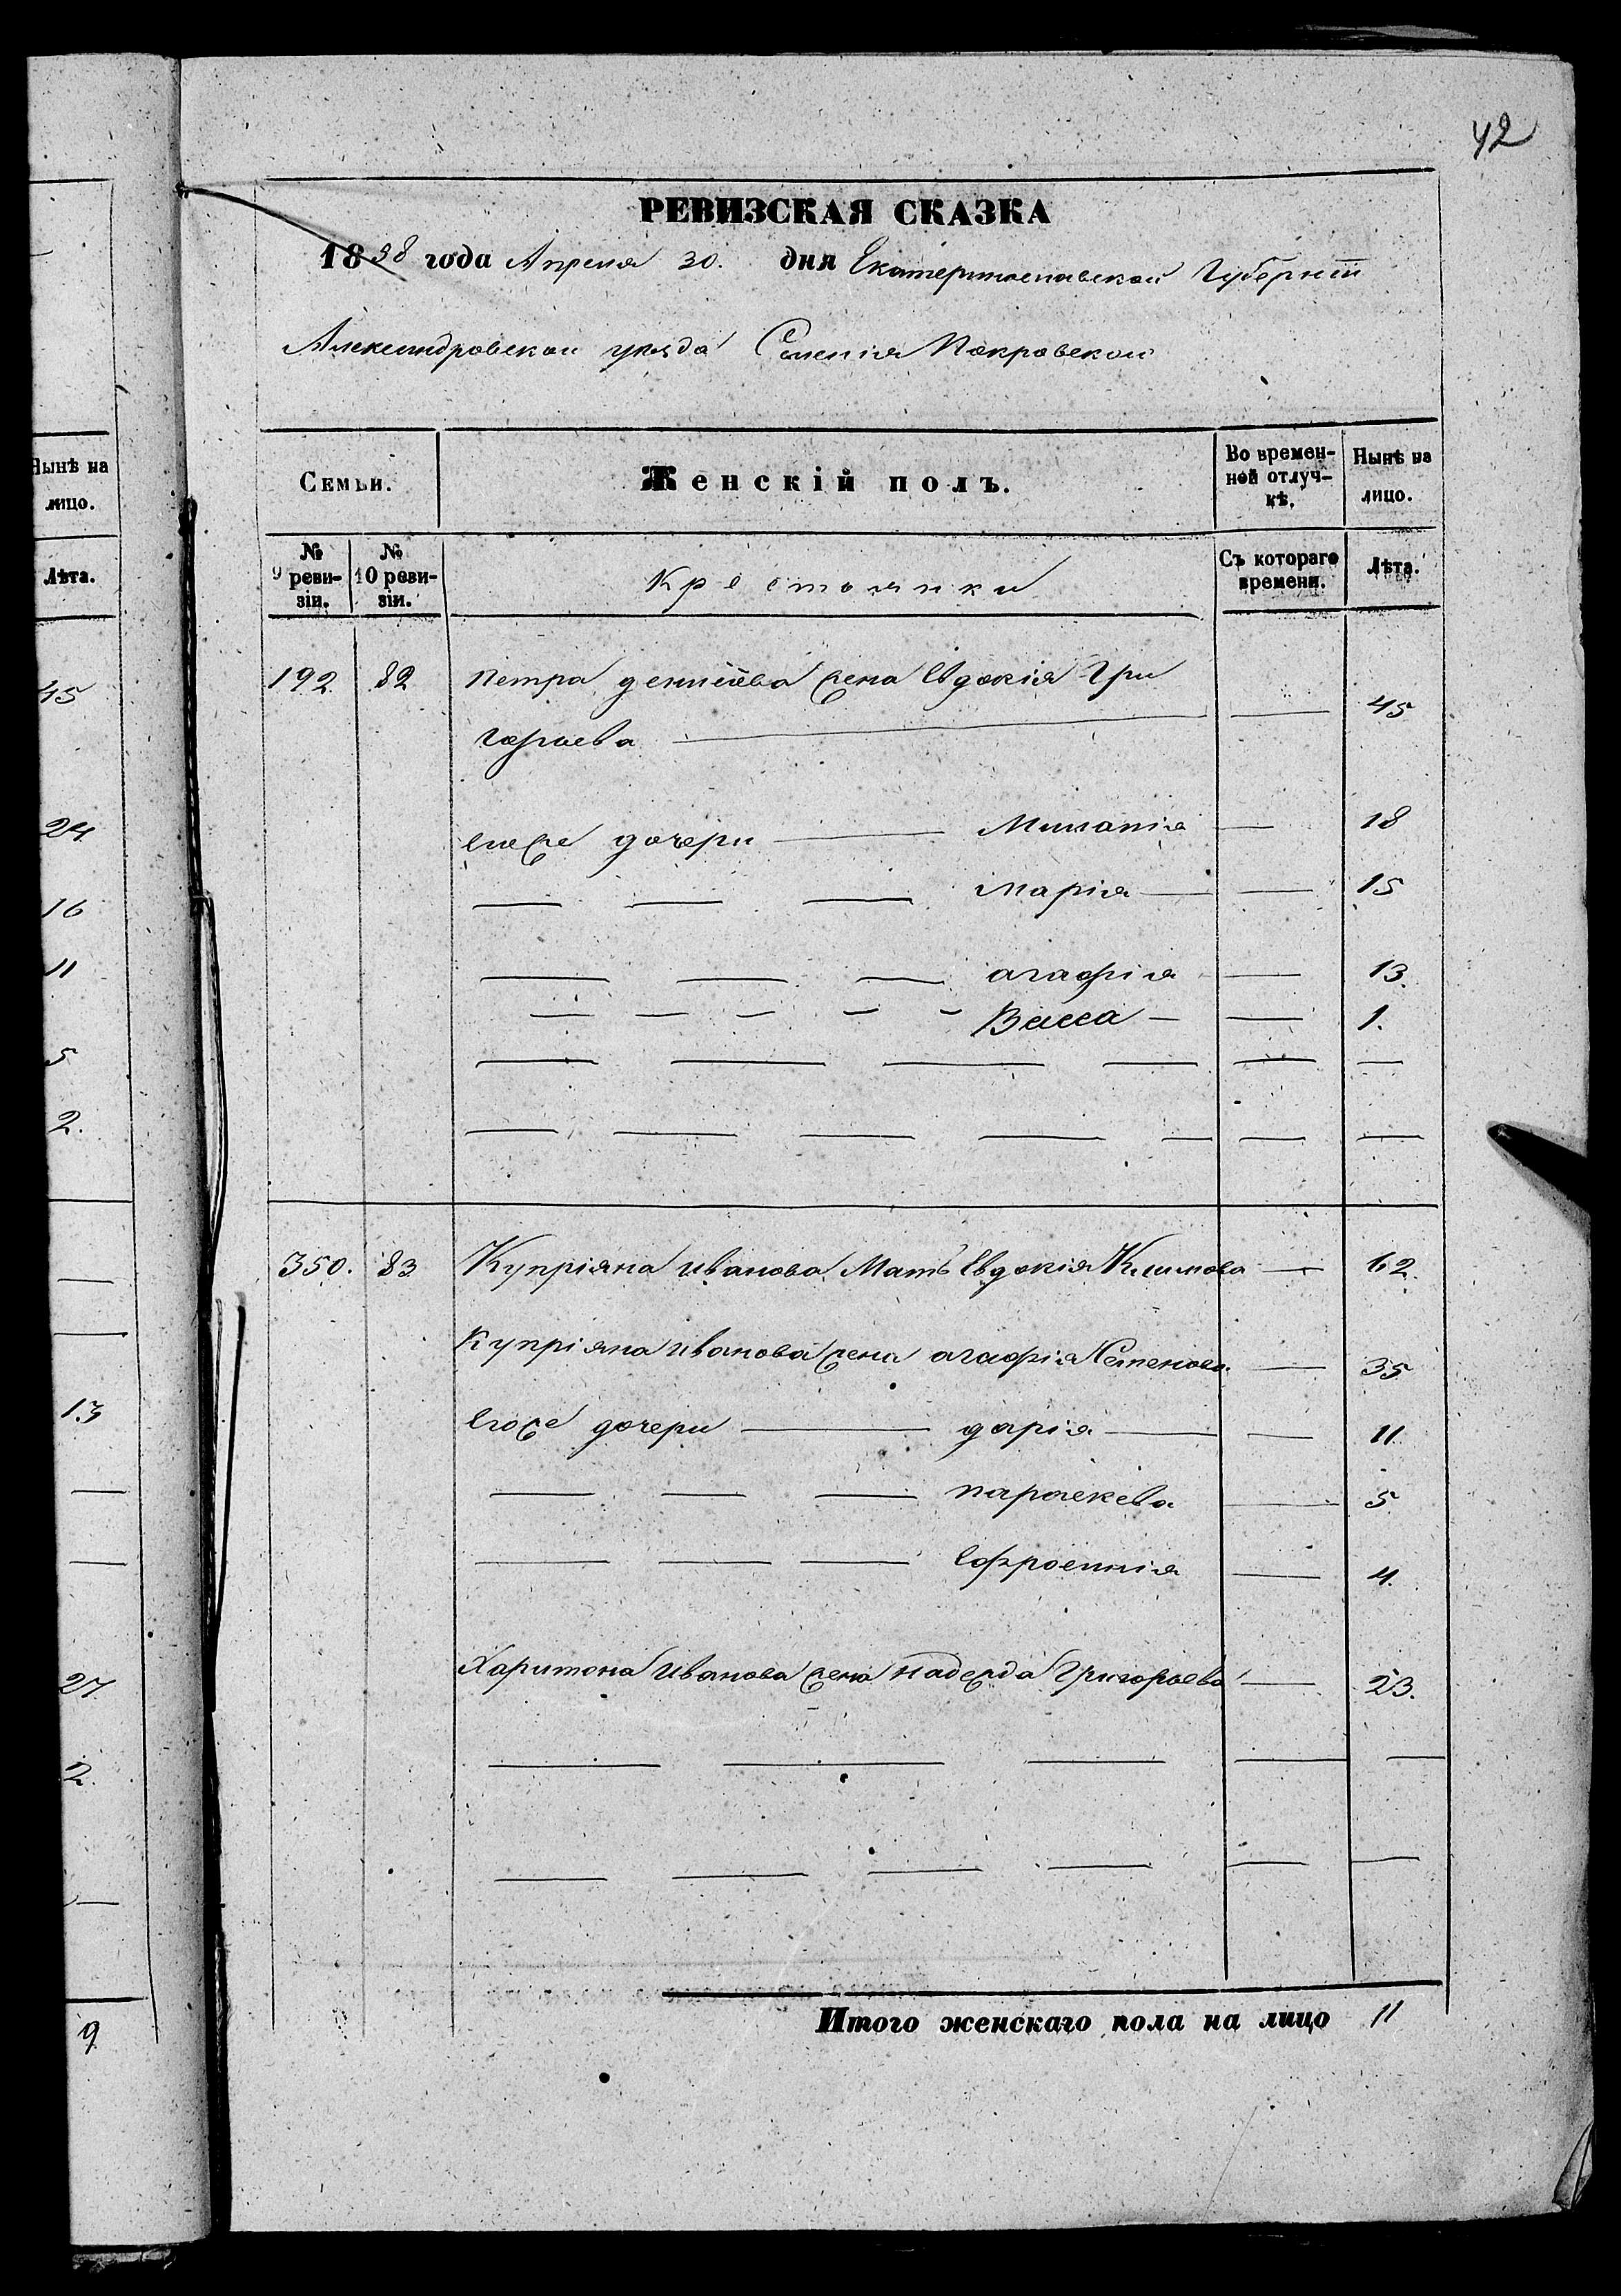 42
РЕВИЗСКАЯ СКАЗКА
1858 года Апреля 30. дня Екатеринославской Губерніи
Александровскаи уезда Селенія Покровскои
Нынѣ на
лицо.
Лѣта.
45
24
16
11
5
2.
13
27
2.
9
Семьи.
Женскій полъ.
Во времен-
ной отлуч-
кѣ.
Нынѣ на
лицо.
№
9 реви-
зіи.
№
10 реви-
зіи.
Крестьянки
Съ котораго
времени.
Лѣта.
192. 82 Петра жена Евдокія Гри
горьева 45
дочери Миланія 18
Марія 15
агафія 13.
Васса 1.
350. 83 Купріяна иванова Мать Евдокія Климова 62.
Купріяна иванова жена агафія Семенова 35
Егоже дочери дарія 11.
параскева 5
Ефросинія 4.
Харитона Иванова жена надежда Григорьева 23.
Итого женскаго пола на лицо 11